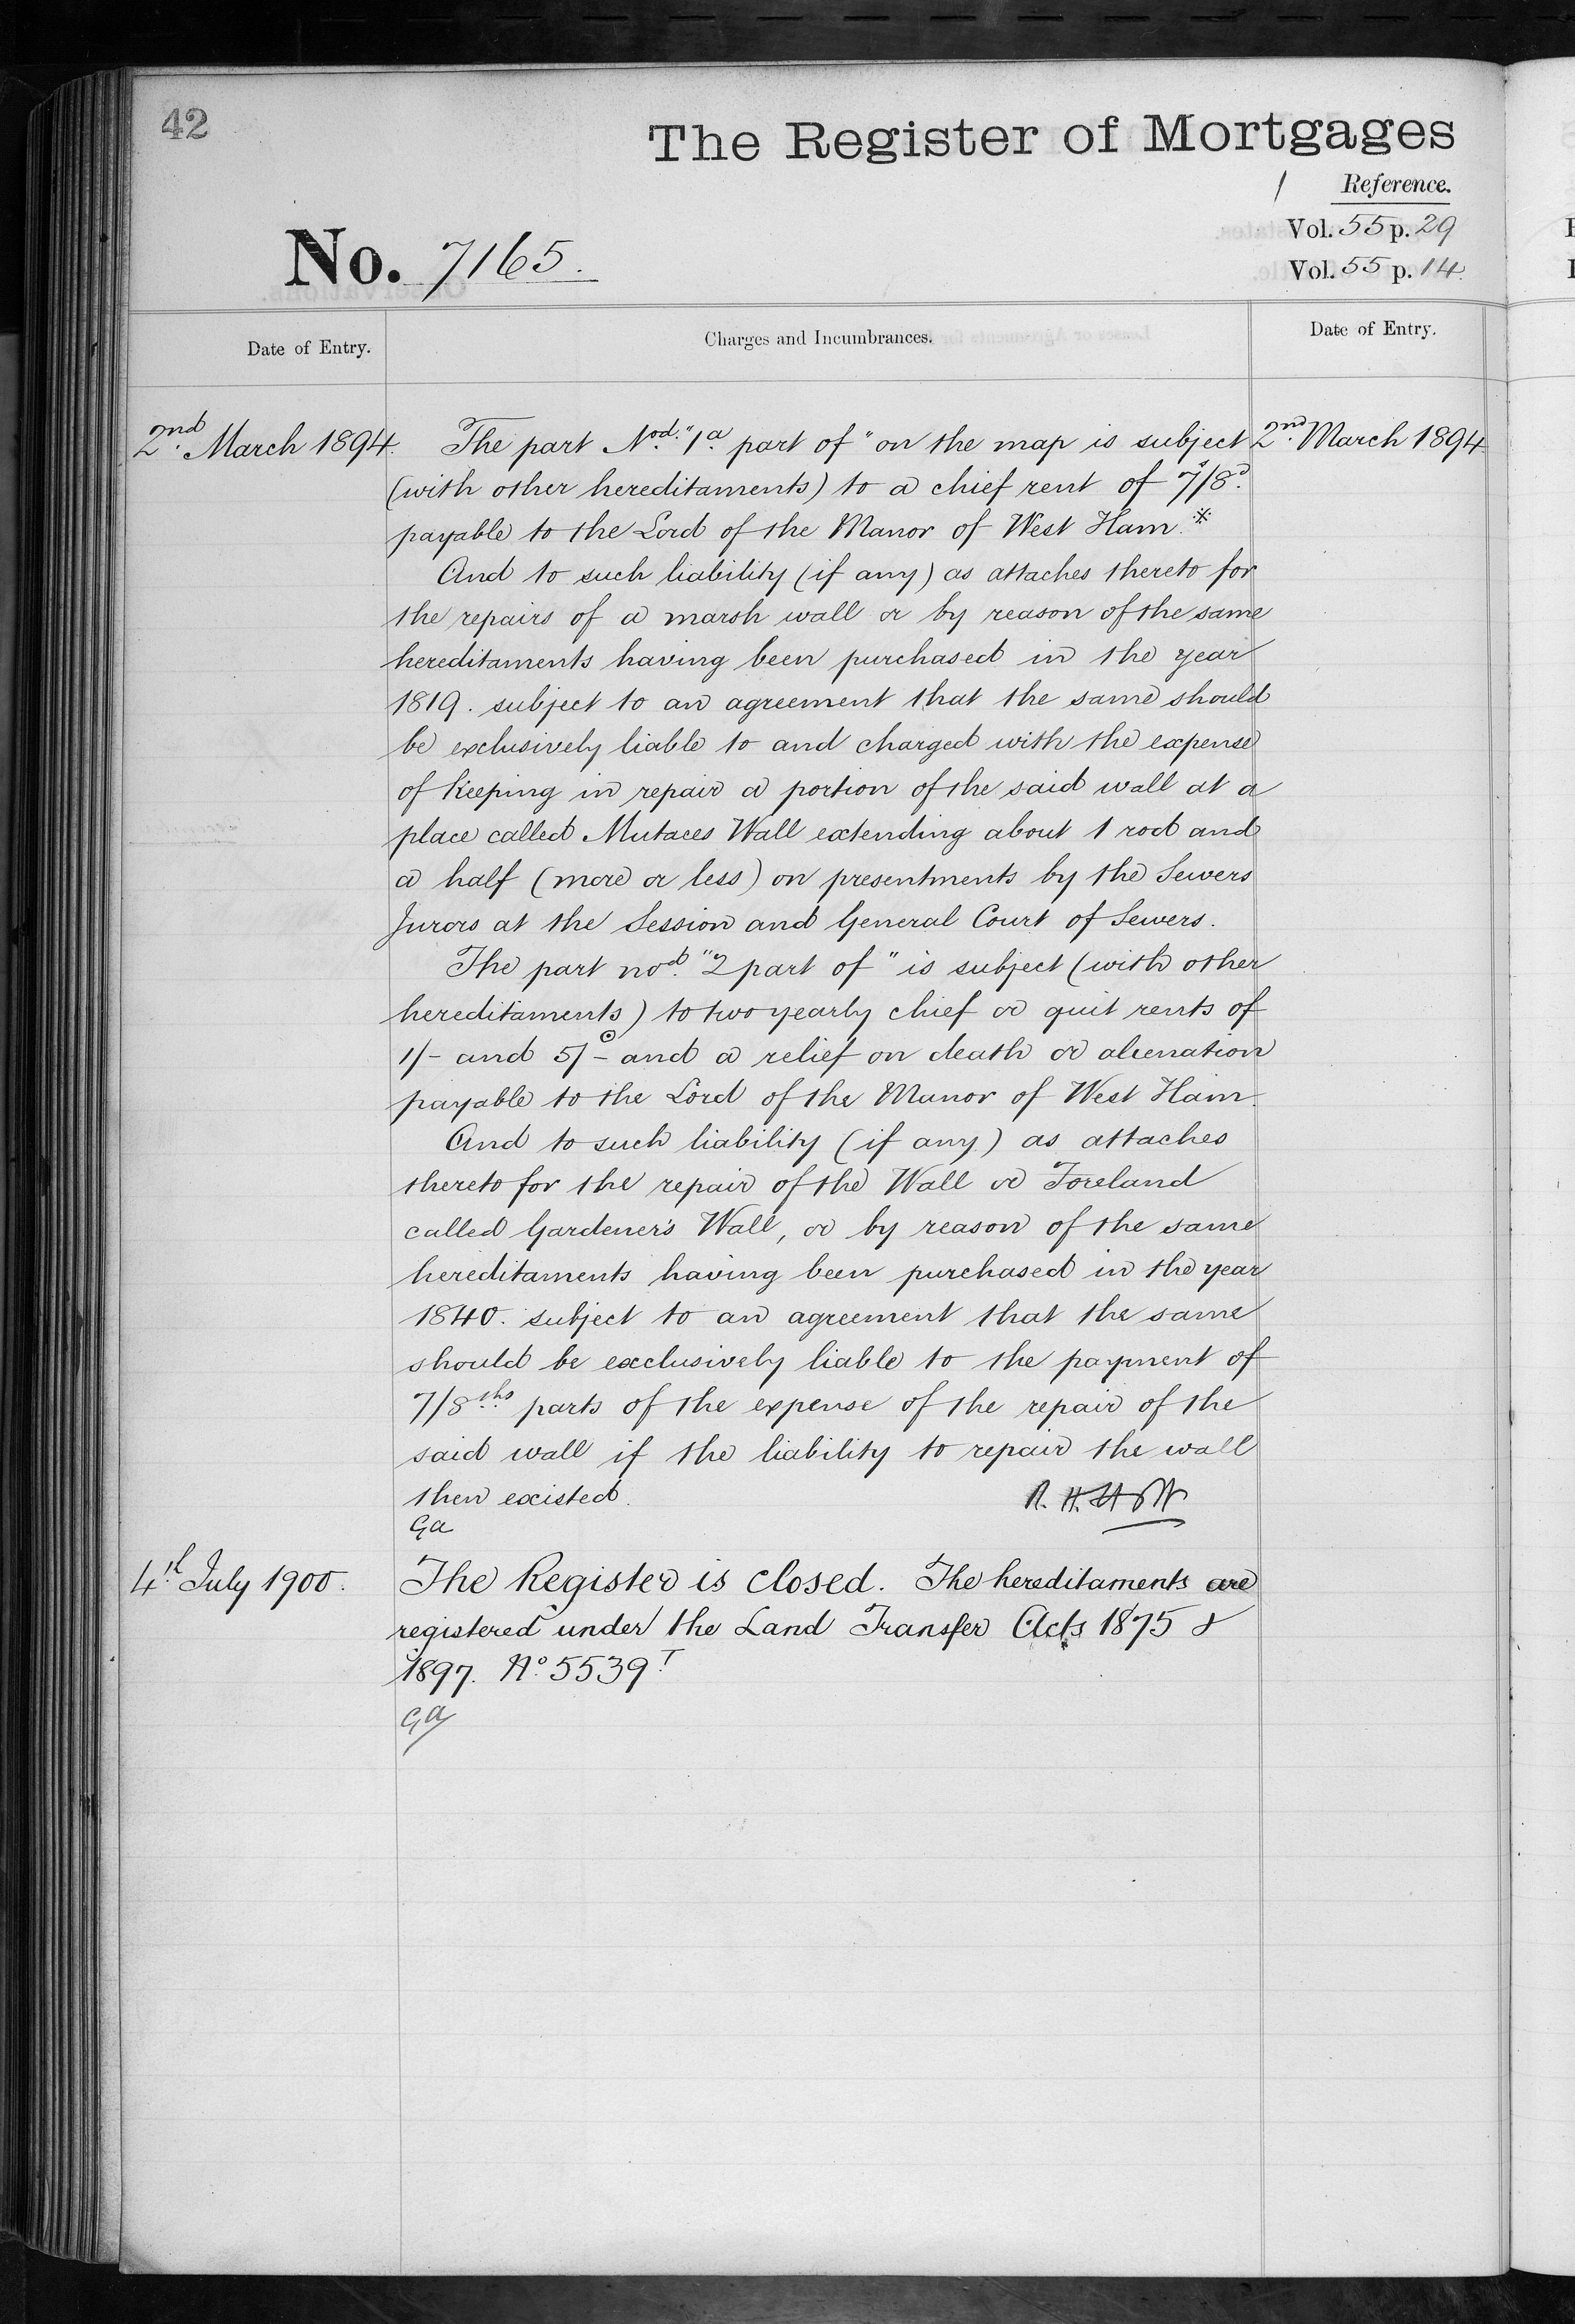 42
The Register of Mortgages
1 Reference.
Vol. 55 p. 29
No. 7165.
Vol. 55 p. 14.
Date of Entry.
Charges and Incumbrances.
Date of Entry.
2nd March 1894.
The part Nod. "1a part of" on the map is subject
2nd March 1894
(with other hereditaments) to a chief rent of 7s/8d
payable to the Lord of the Manor of West Ham.*
And to such liability (if any) as attaches thereto for
the repairs of a marsh wall or by reason of the same
hereditaments having been purchased in the year
1819. subject to an agreement that the same should
be exclusively liable to and charged with the expense
of keeping in repair a portion of the said wall at a
place called Mutaces Wall extending about 1 rod and
a half (more or less) on presentments by the Sewers
Jurors at the Session and General Court of Sewers.
The part nod. "2 part of" is subject (with other
hereditaments) to two yearly chief or quit rents of
1/- and 5/- and a relief on death or alienation
payable to the Lord of the Manor of West Ham.
And to such liability (if any) as attaches
thereto for the repair of the Wall or Foreland
called Gardener's Wall, or by reason of the same
hereditaments having been purchased in the year
1840. subject to an agreement that the same
should be exclusively liable to the payment of
7/8ths parts of the expense of the repair of the
said wall if the liability to repair the wall
then existed.
Ga
4th July 1900.
The Register is closed. The hereditaments are
registered under the Land Transfer Acts 1875 &
1897. No 5539T
Ga